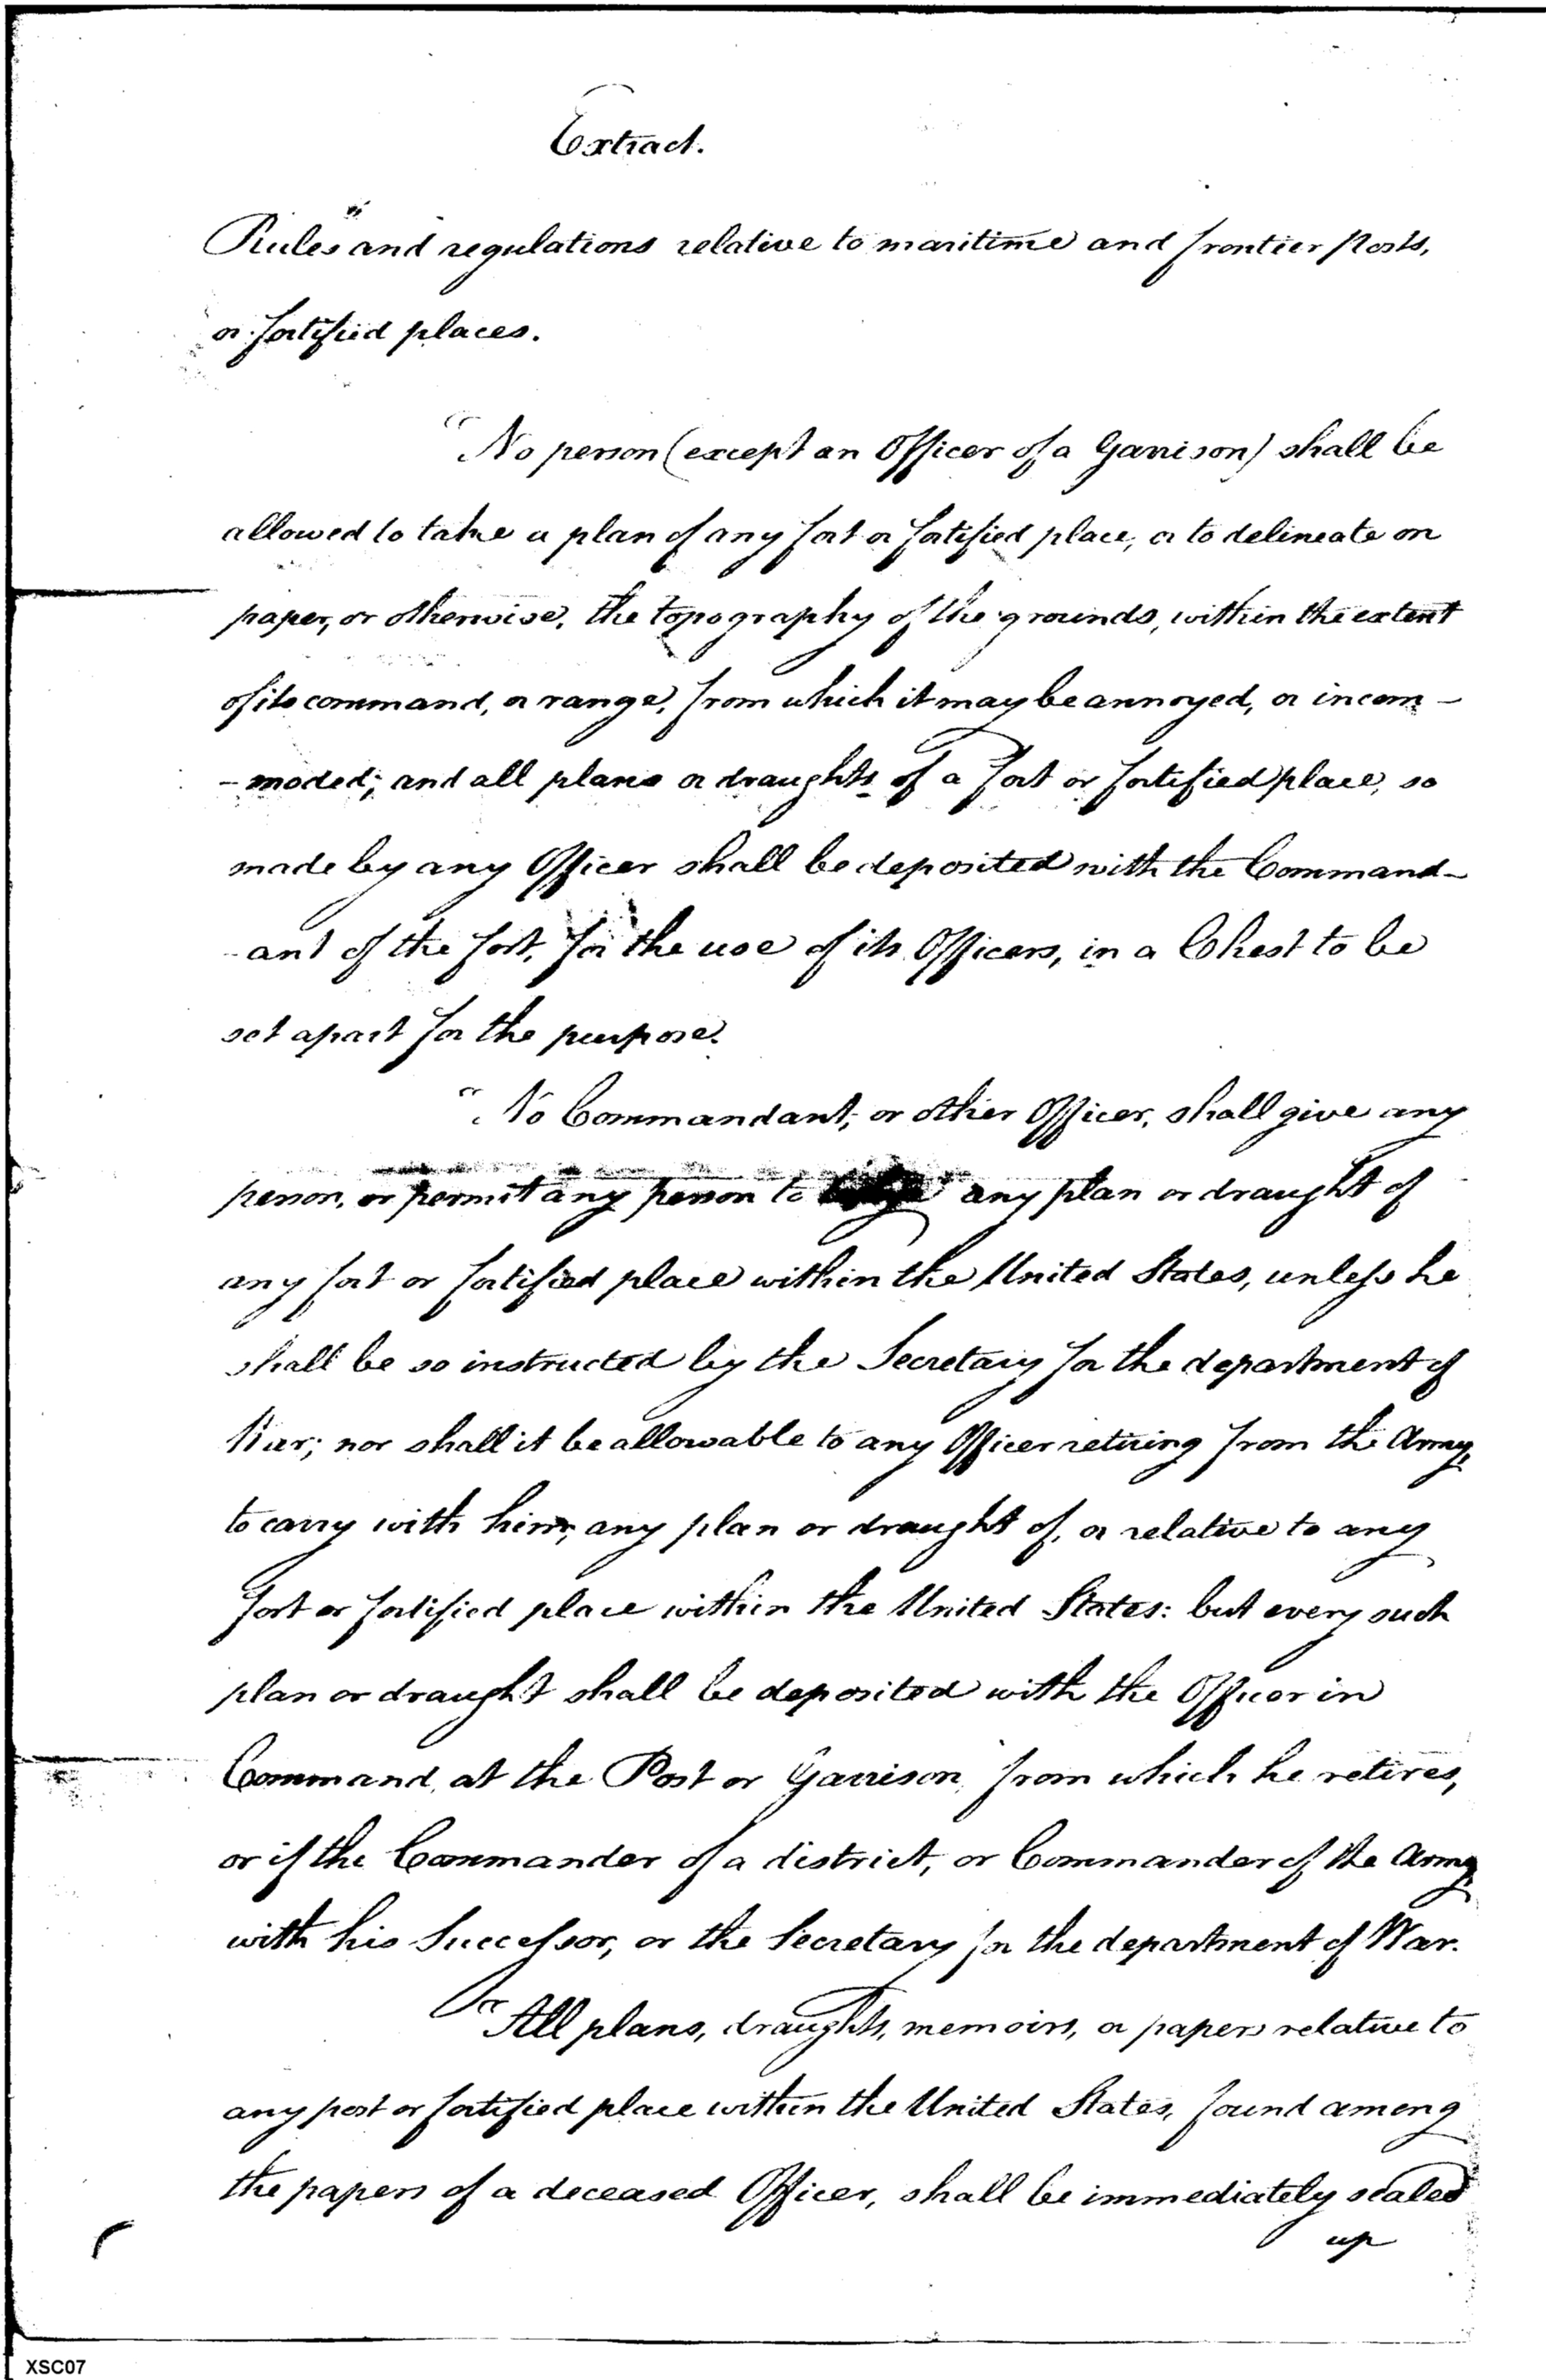 Extract.
Rules and regulations relative to maritime and frontier Posts,
or fortified places.
"No person (except an Officer of a Garrison) shall be
allowed to take a plan of any fort or fortified place, or to delineate on
paper, or otherwise, the topography of the grounds, within the extent
of its command, or range, from which it may be annoyed, or incom-
-moded; and all plans or draughts of a fort or fortified place, so
made by any Officer shall be deposited with the Command-
-ant of the fort, for the use of its Officers, in a Chest to be
set apart for the purpose.
"No Commandant, or other Officer, shall give any
person, or permit any person to any plan or draught of
any fort or fortified place within the United States, unless he
shall be so instructed by the Secretary for the department of
War; nor shall it be allowable to any Officer retiring from the Army,
to carry with him, any plan or draught of, or relative to any
fort or fortified place within the United States: but every such
plan or draught shall be deposited with the Officer in
Command, at the Post or Garrison from which he retires,
or if the Commander of a district, or Commander of the Army,
with his Successor, or the Secretary for the department of War.
"All plans, draughts, memoirs, or papers relative to
any post or fortified place within the United States, found among
the papers of a deceased Officer, shall be immediately sealed
up
XSC07